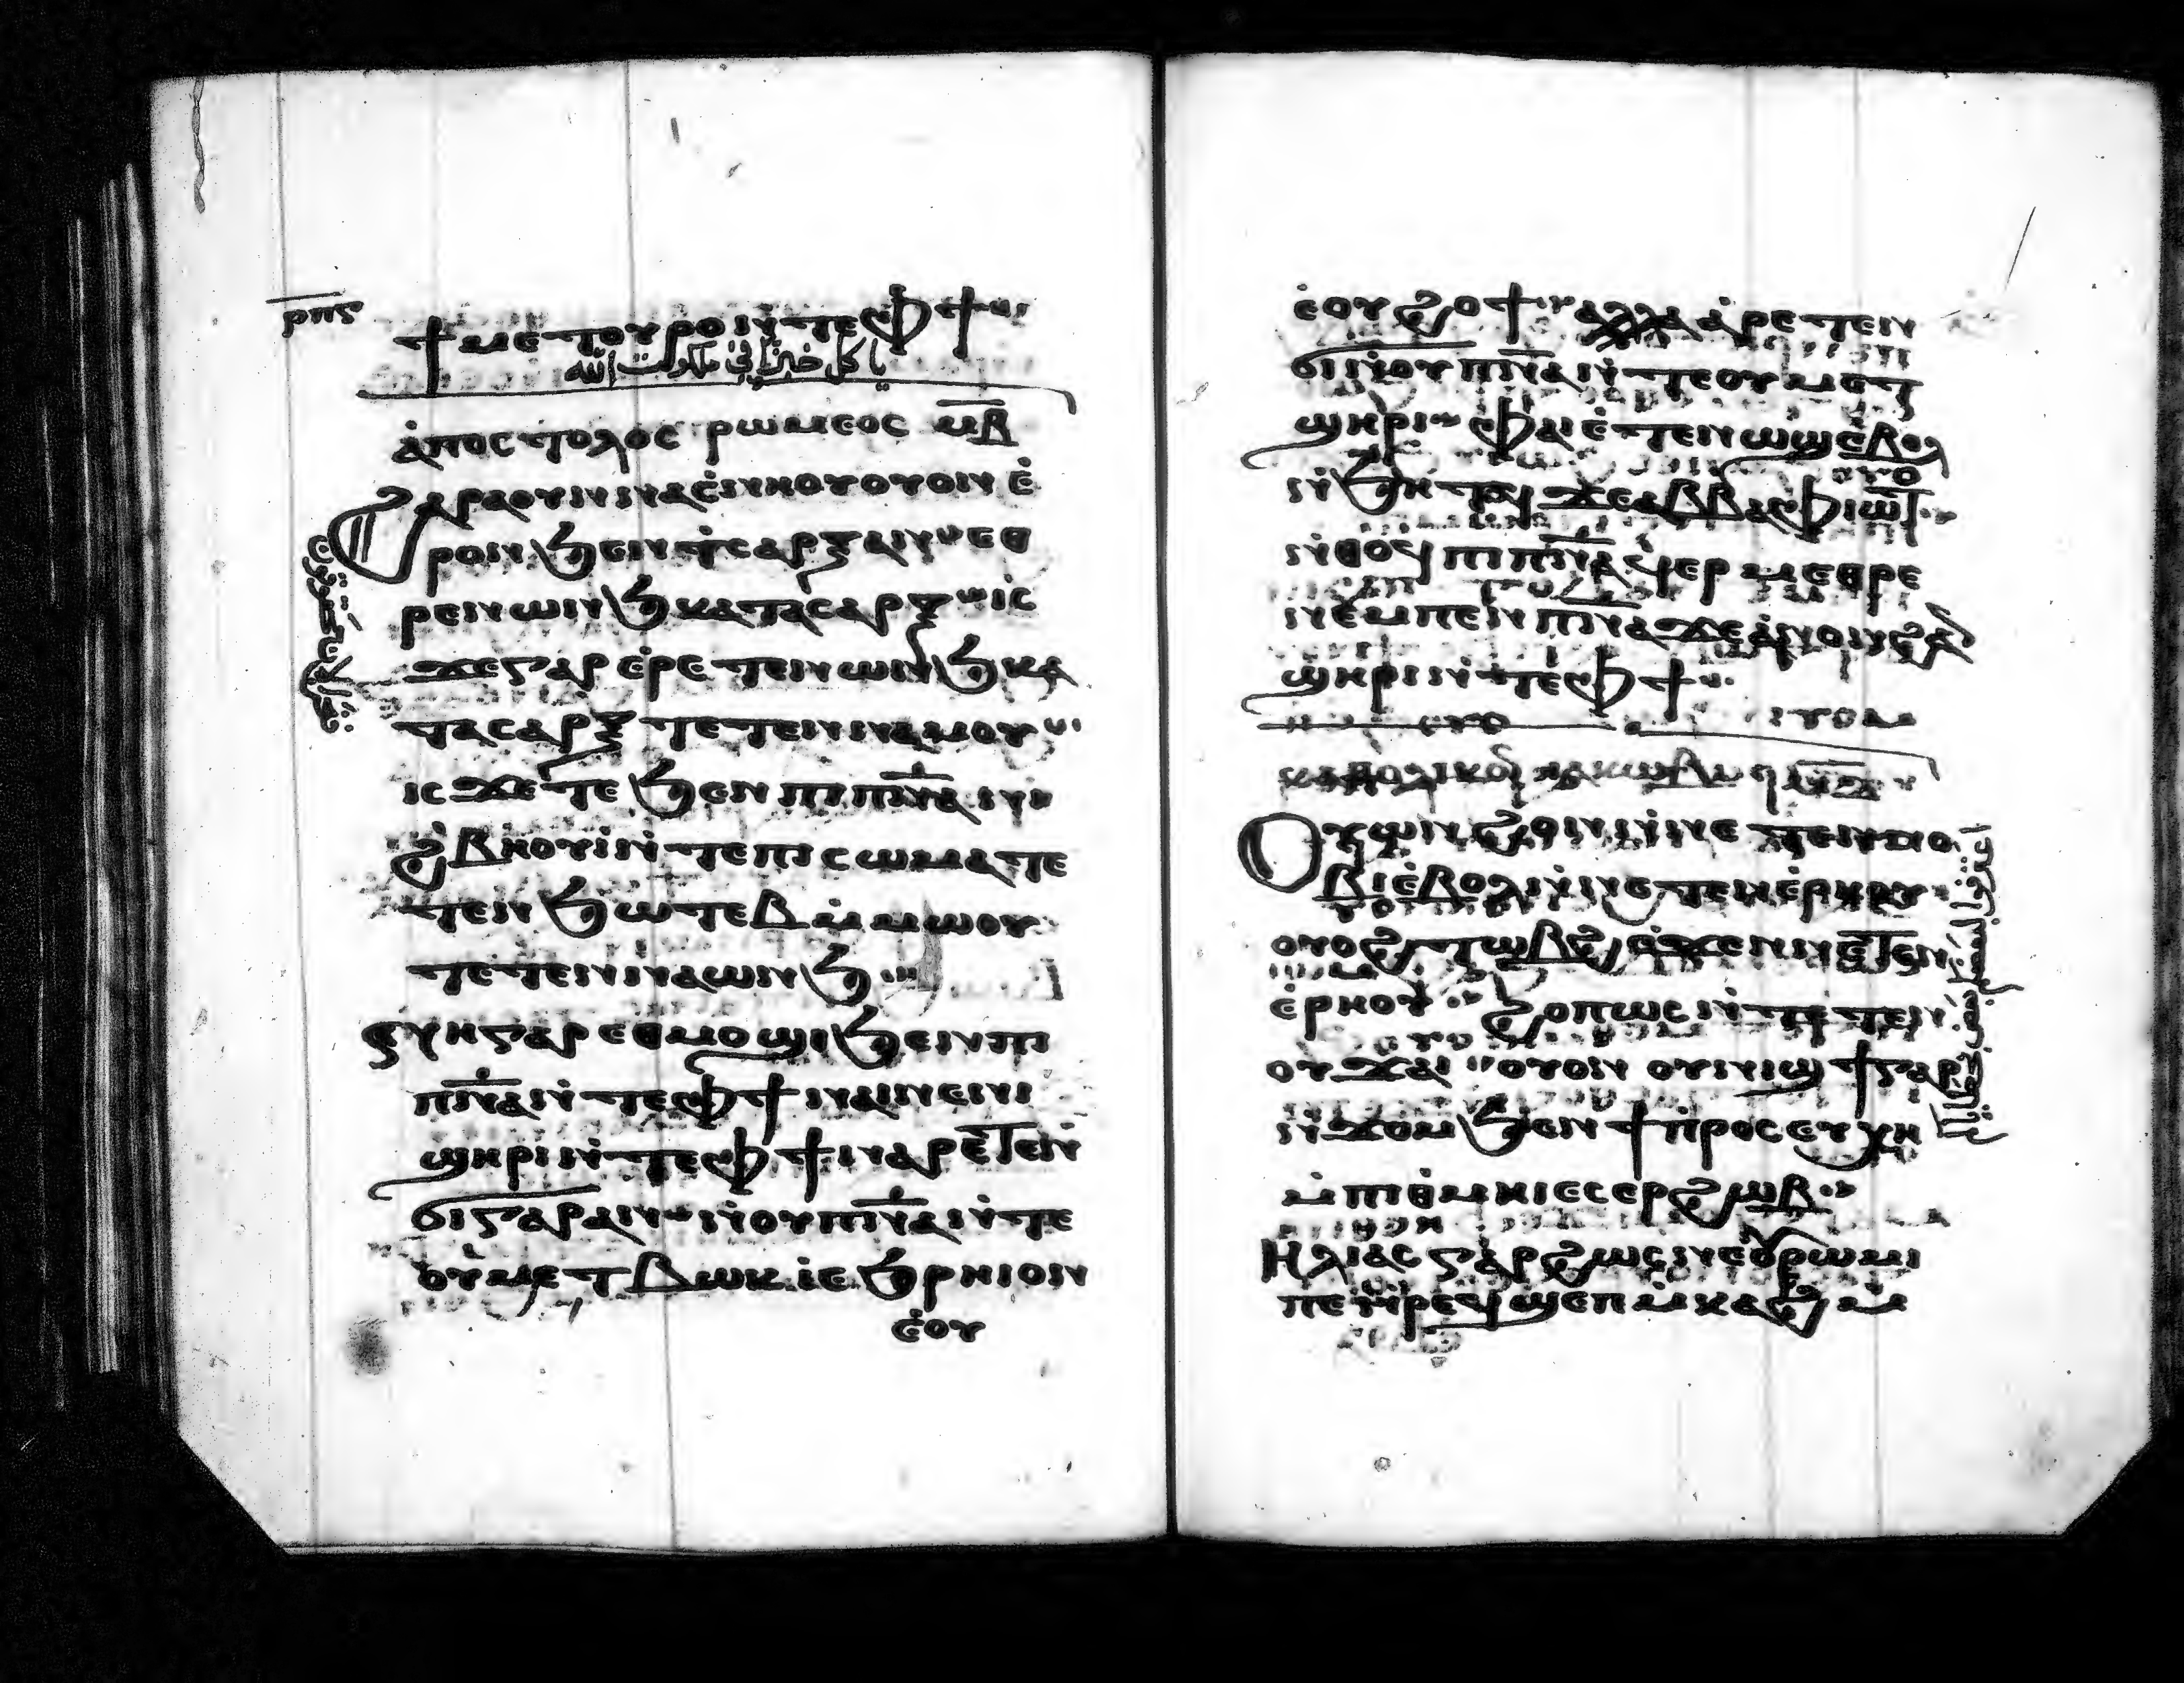 ⲣⲡⲋ
ϯⲙⲉⲧⲟⲩⲣⲟ ⲛ̀ⲧⲉ ⲫϯ
ياكل خبزا في ملكوت الله
ⲁ̀ⲡⲟⲥⲧⲟⲗⲟⲥ ⲣⲱⲙⲉⲟⲥ ⲙ̅ⲃ̅
ϩⲁⲣⲁ ⲟⲩⲛ ⲛⲁⲥⲛⲏⲟⲩ ⲟⲩⲟⲛ ⲉ̀
ⲣⲟⲛ ϧⲉⲛ ϯⲥⲁⲣⲝ ⲁⲛ ⲉⲑ
ⲣⲉⲛⲱⲛϧ ⲕⲁⲧⲁ ⲥⲁⲣⲝ ⲓⲥ
ϫⲉ ⲅⲁⲣ ⲉ̀ⲣⲉⲧⲉⲛⲱⲛϧ ⲕⲁ
ⲧⲁ ⲥⲁⲣⲝ ⲧⲉⲧⲉⲛⲛⲁⲙⲟⲩ
ⲓⲥϫⲉ ⲇⲉ ϧⲉⲛ ⲡⲓⲡⲛ̅ⲁ̅ ⲛⲓ
ϩⲃⲏⲟⲩⲓ ⲛ̀ⲧⲉ ⲡⲓⲥⲱⲙⲁ ⲧⲉ
ⲧⲉⲛϧⲱⲧⲉⲃ ⲙ̀ⲙⲱⲟⲩ
ⲧⲉⲧⲉⲛⲛⲁⲱⲛϧ
ⲛⲏ ⲅⲁⲣ ⲉⲑⲙⲟϣⲓ ϧⲉⲛ ⲡⲓ
ⲡⲛ̅ⲁ̅ ⲛ̀ⲧⲉ ⲫϯ ⲛⲁⲓ ⲛⲉ ⲛⲓ
ϣⲏⲣⲓ ⲛ̀ⲧⲉ ⲫϯ ⲛⲁⲣⲉⲧⲉⲛ
ϭⲓ ⲅⲁⲣ ⲁⲛ ⲛ̀ⲟⲩⲡⲛ̅ⲁ̅ ⲛ̀ⲧⲉ
ⲟⲩⲙⲉⲧⲃⲱⲕ ⲉ̀ϧⲣⲏⲓ ⲟⲛ
ⲉ̀ⲟⲩ
ⲉ̀ⲟⲩϩⲟϯ ⲁⲗⲗⲁ ⲁ̀ⲣⲉⲧⲉⲛ
ϭⲓ ⲛ̀ⲟⲩⲡⲛ̅ⲁ̅ ⲛ̀ⲧⲉ ⲟⲩⲙⲉⲧ
ϣⲏⲣⲓ ⲫⲁⲓ ⲉ̀ⲧⲉⲛⲱϣ ⲉ̀ⲃⲟⲗ
ⲛ̀ϧⲏⲧϥ ϫⲉ ⲁⲃⲃⲁ ⲫⲓⲱⲧ
ⲛ̀ⲑⲟϥ ⲡⲓⲡⲛ̅ⲁ̅ ϥⲉⲣⲙⲉⲑⲣⲉ
ⲛⲉⲙ ⲡⲉⲛⲡⲛ̅ⲁ̅ ϫⲉ ⲁ̀ⲛⲟⲛ ϩⲁⲛ
ϣⲏⲣⲓ ⲛ̀ⲧⲉ ⲫϯ
ⲕⲁⲑⲟⲗⲓⲕⲟⲛ ⲓⲁⲕⲱⲃⲟⲩ
ⲟⲩⲱⲛϩ ⲟⲩⲛ ⲛ̀ⲛⲉⲧⲉⲛⲛⲟ
ⲃⲓ ⲉ̀ⲃⲟⲗ ⲛ̀ⲛⲉⲧⲉⲛⲉ̀ⲣⲏⲟⲩ
ⲟⲩⲟϩ ⲧⲱⲃϩ ⲉ̀ϫⲉⲛ ⲛⲉⲧⲉⲛ
ⲉ̀ⲣⲏⲟⲩ ϩⲟⲡⲱⲥ ⲛ̀ⲧⲉⲧⲉⲛ
ⲟⲩϫⲁⲓ ⲟⲩⲟⲛ ⲟⲩⲛⲓϣϯ ⲅⲁⲣ
ⲛ̀ϫⲟⲙ ϧⲉⲛ ϯⲡⲣⲟⲥⲉⲩⲭⲏ
ⲙ̀ⲡⲓⲑ̀ⲙⲏⲓ ⲉⲥⲉⲣϩⲱⲃ
ⲏⲗⲓⲁⲥ ⲅⲁⲣ ϩⲱⲥ ⲛⲉ ⲟⲩⲣⲱⲙⲓ
ⲡⲉ ⲛ̀ⲣⲉϥϣⲉⲡ ⲙ̀ⲕⲁϩ ⲙ̀